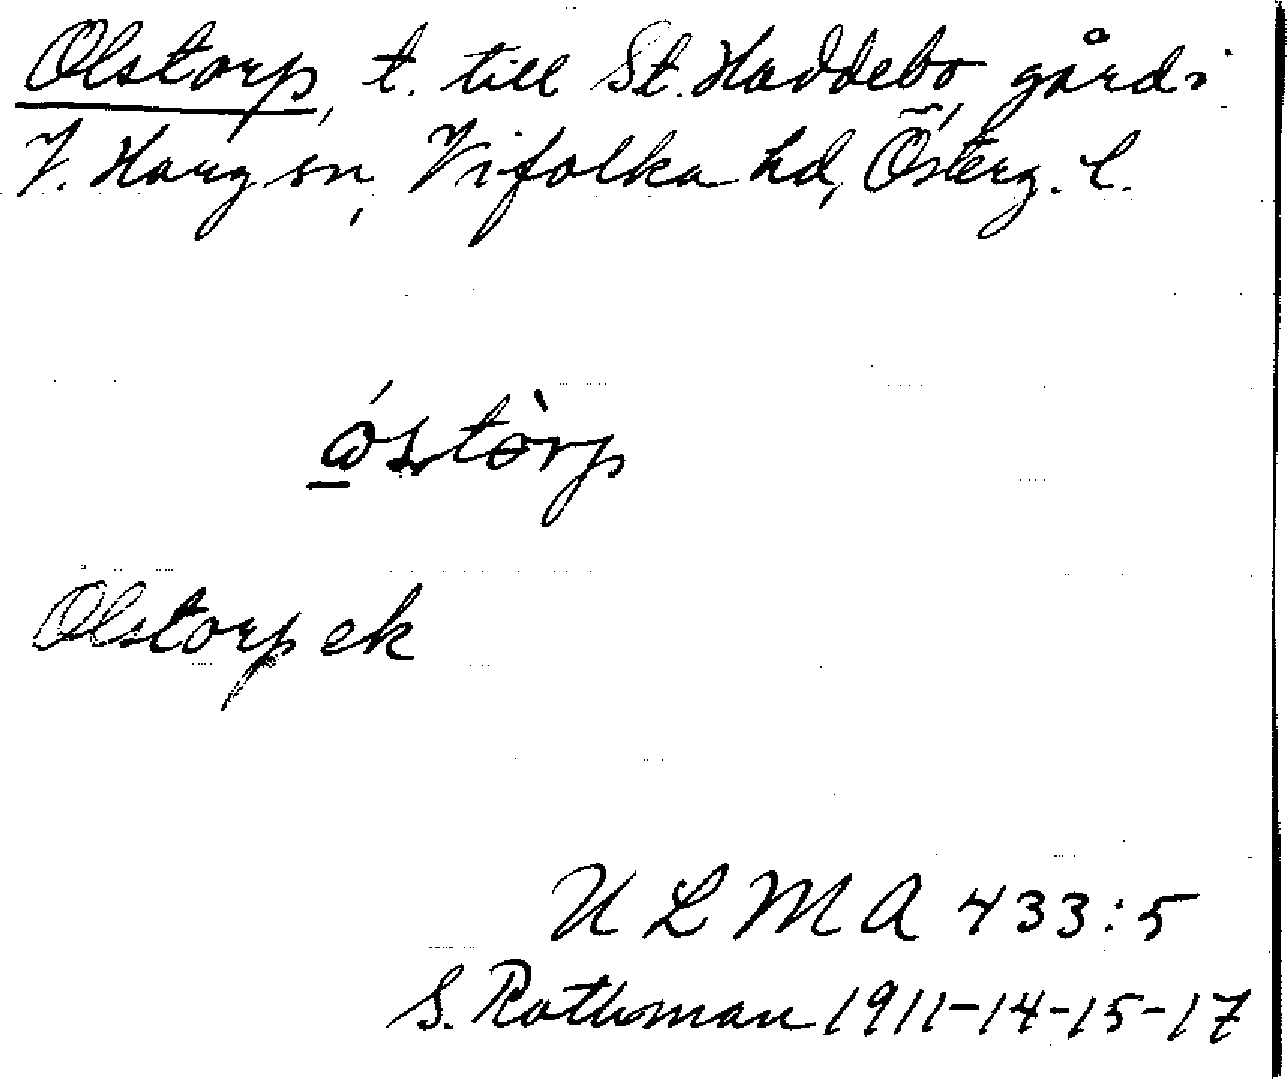 Olstorp, t. till St. Haddebo, gård i
V. Harg sn, Vifolka hd, Österg. l.
óstòrp
Olstorp ek
ULMA 433:5
S. Rothman 1911-14-15-17